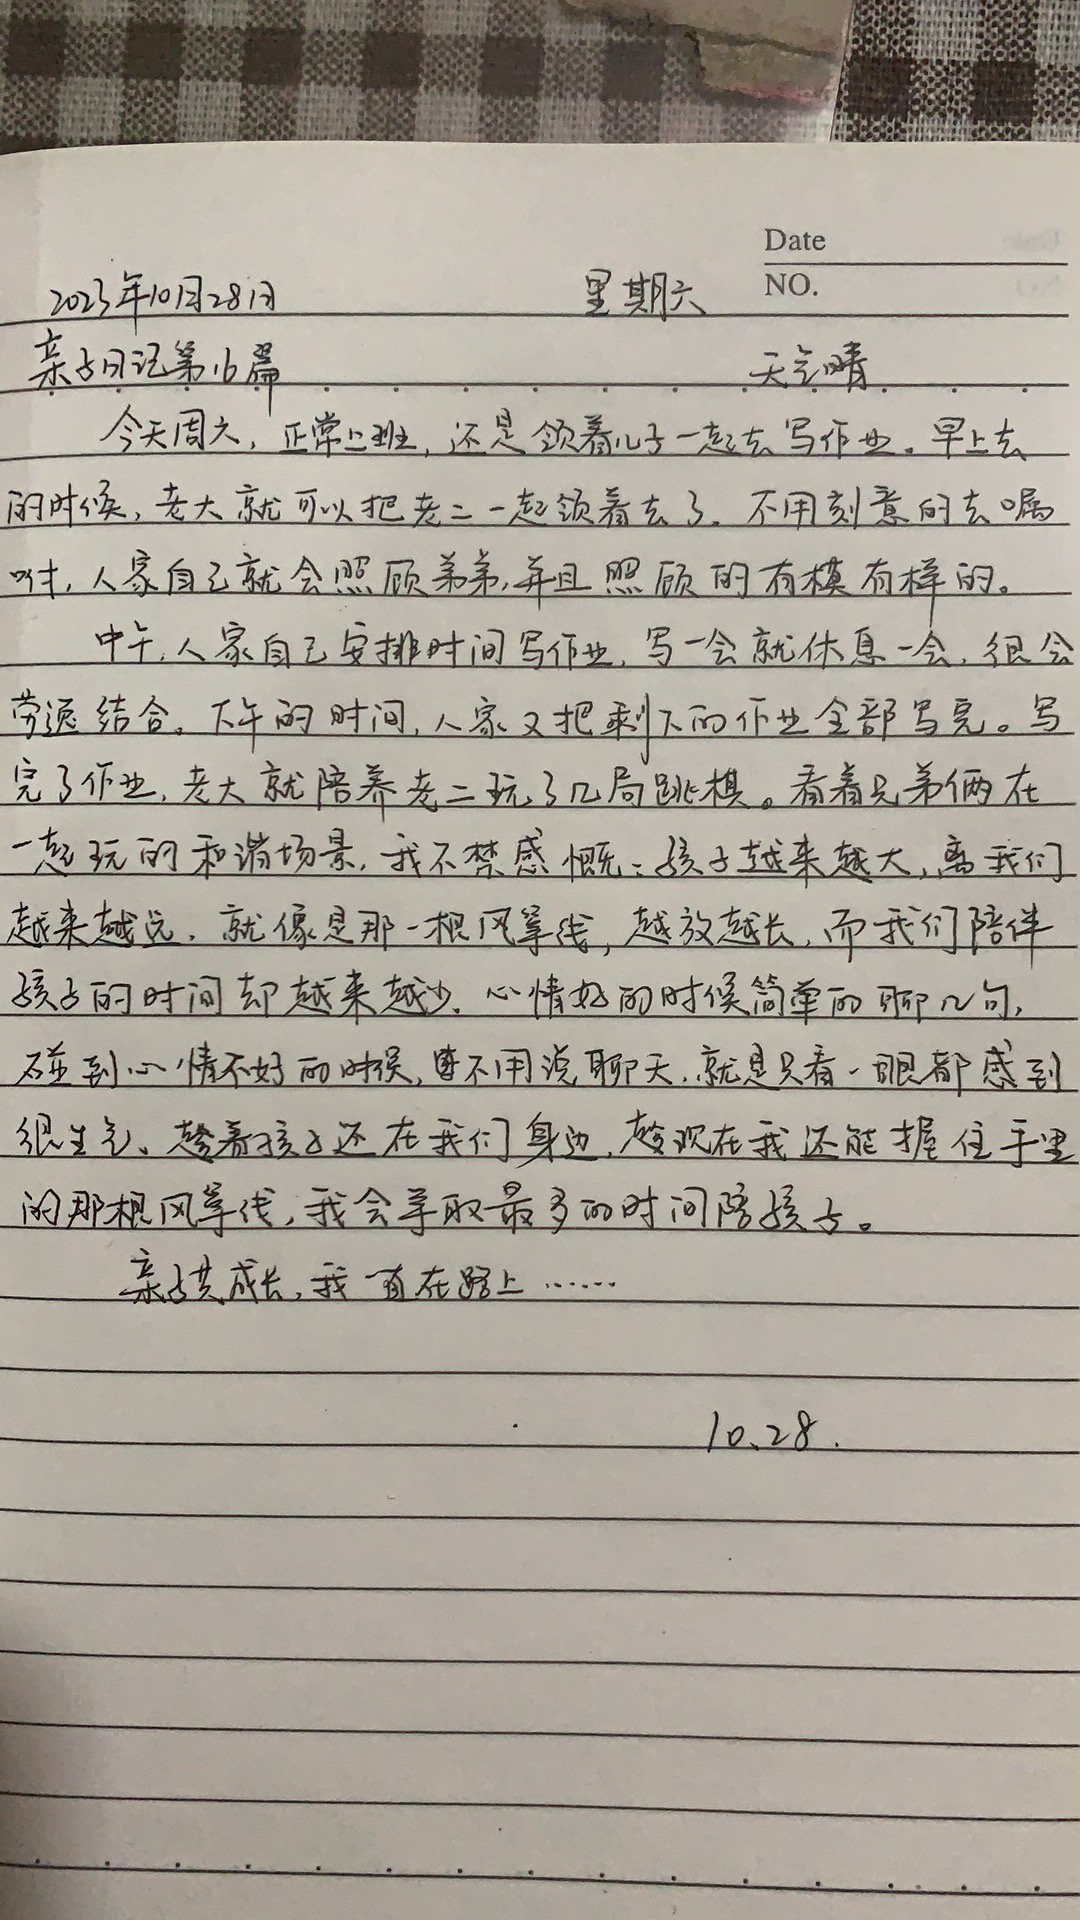 Date
NO.
2023年10月28日 星期六
亲子日记第16篇 天气晴
今天周六，正常上班，还是领着儿子一起去写作业。早上去
的时候，老大就可以把老二一起领着去了。不用刻意的去嘱
咐，人家自己就会照顾弟弟，并且照顾的有模有样的。
中午，人家自己安排时间写作业，写一会就休息一会，很会
劳逸结合。下午的时间，人家又把剩下的作业全部写完。写
完了作业，老大就陪养老二玩了几局跳棋。看着兄弟俩在
一起玩的和谐场景，我不禁感慨：孩子越来越大，离我们
越来越远，就像是那一根风筝线，越放越长，而我们陪伴
孩子的时间却越来越少。心情好的时候简单的聊几句，
碰到心情不好的时候，不用说聊天，就是只看一眼都感到
很生气。趁着孩子还在我们身边，趁现在我还能握住手里
的那根风筝线，我会争取最多的时间陪孩子。
亲子共成长，我一直在路上……
10、28.